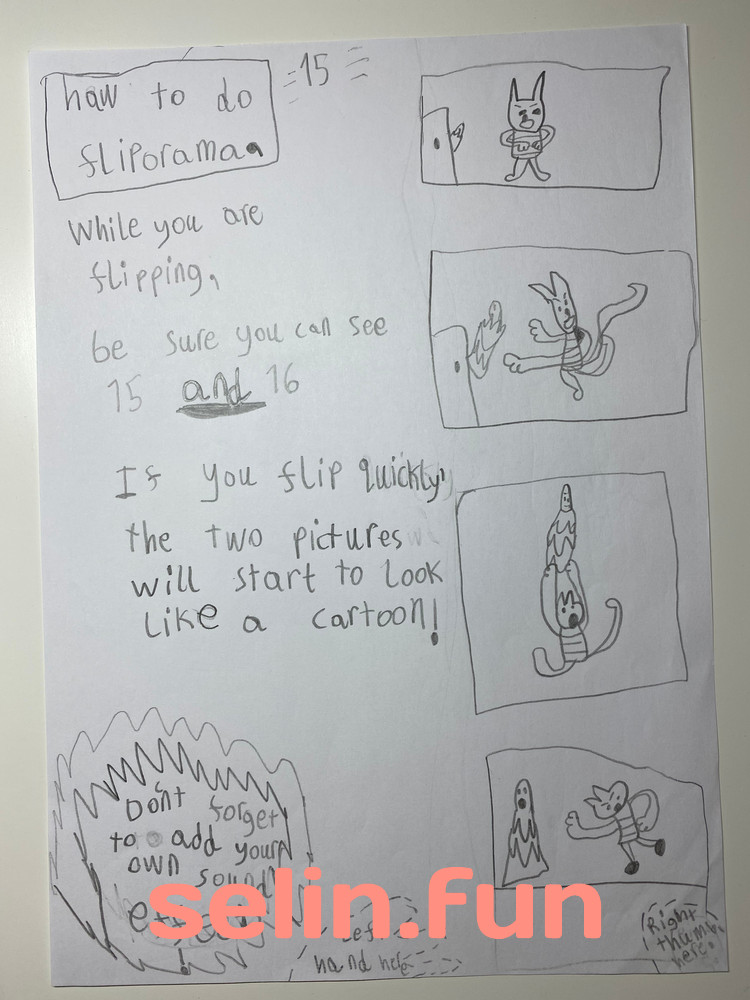 haw to do
fliporama.
15
While you are
flipping,
be sure you can see
15 and 16
If you flip quickly,
the two pictures
will start to look
like a cartoon!
Don't forget
to add your
own sound
Right
thumb
here!
hand here
selin.fun